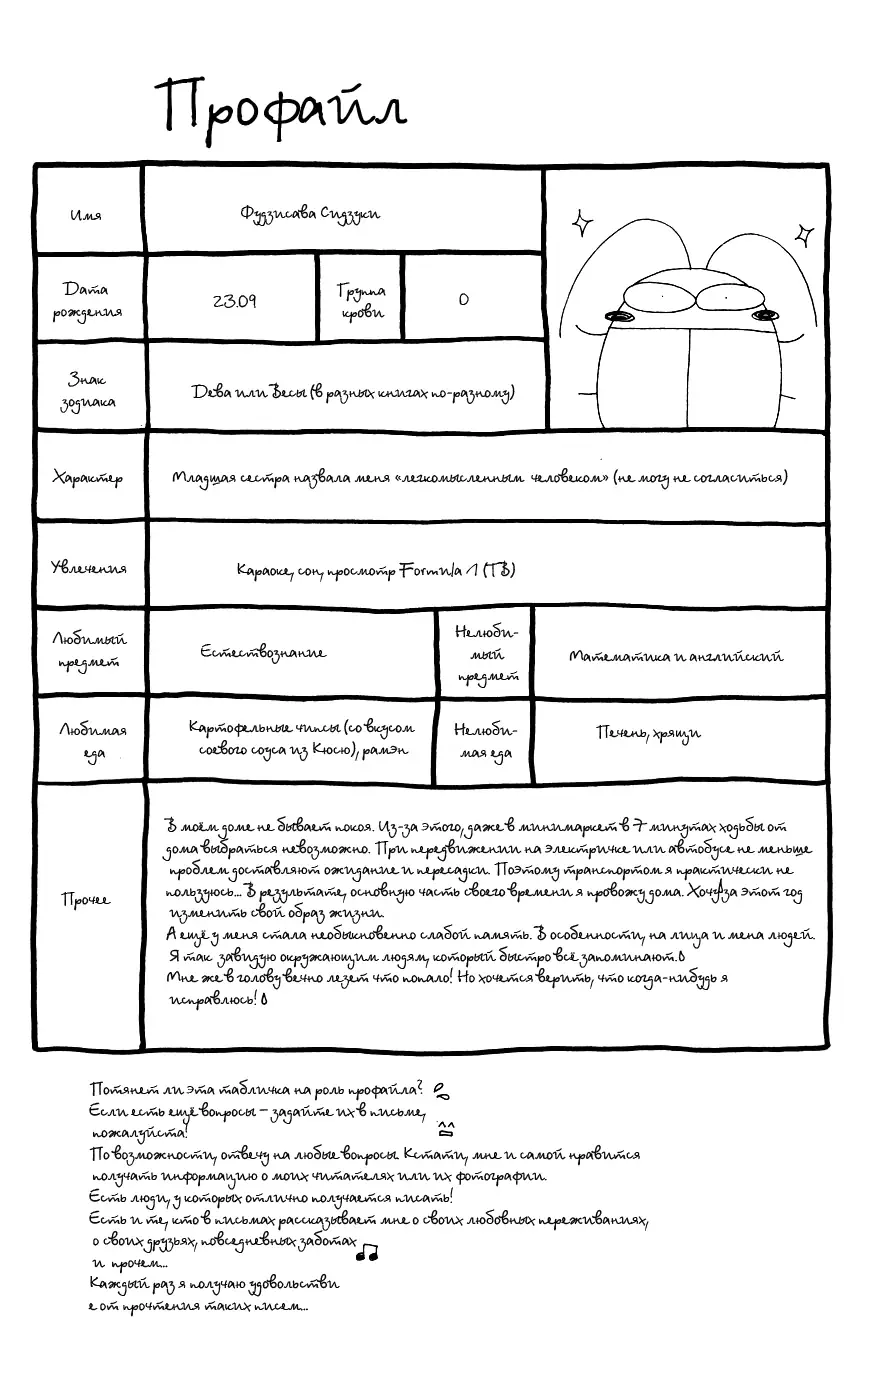 Профайл
Имя
Фудзисава Сидзуки
Дата
рождения
23.09
Группа
крови
0
Знак
зодиака
Дева или Весы (в разных книгах по-разному)
Характер
Младшая сестра назвала меня «легкомысленным человеком» (не могу не согласиться)
Увлечения
Караоке, сон, просмотр Formula 1 (ТВ)
Любимый
предмет
Естествознание
Нелюби-
мый
предмет
Математика и английский
Любимая
еда
Картофельные чипсы (со вкусом
соевого соуса из Кюсю), рамэн
Нелюби-
мая еда
Печень, хрящи
Прочее
В моём доме не бывает покоя. Из-за этого, даже в минимаркет в 7 минутах ходьбы от
дома выбраться невозможно. При передвижении на электричке или автобусе не меньше
проблем доставляют ожидание и пересадки. Поэтому транспортом я практически не
пользуюсь... В результате, основную часть своего времени я провожу дома. Хочу за этот год
изменить свой образ жизни.
А ещё у меня стала необыкновенно слабой память. В особенности, на лица и мена людей.
Я так завидую окружающим людям, который быстро всё запоминают.
Мне же в голову вечно лезет что попало! Но хочется верить, что когда-нибудь я
исправлюсь!
Потянет ли эта табличка на роль профайла?
Если есть ещё вопросы – задайте их в письме,
пожалуйста!
По возможности, отвечу на любые вопросы. Кстати, мне и самой нравится
получать информацию о моих читателях или их фотографии.
Есть люди, у которых отлично получается писать!
Есть и те, кто в письмах рассказывает мне о своих любовных переживаниях,
о своих друзьях, повседневных заботах
и прочем...
Каждый раз я получаю удовольстви
е от прочтения таких писем...